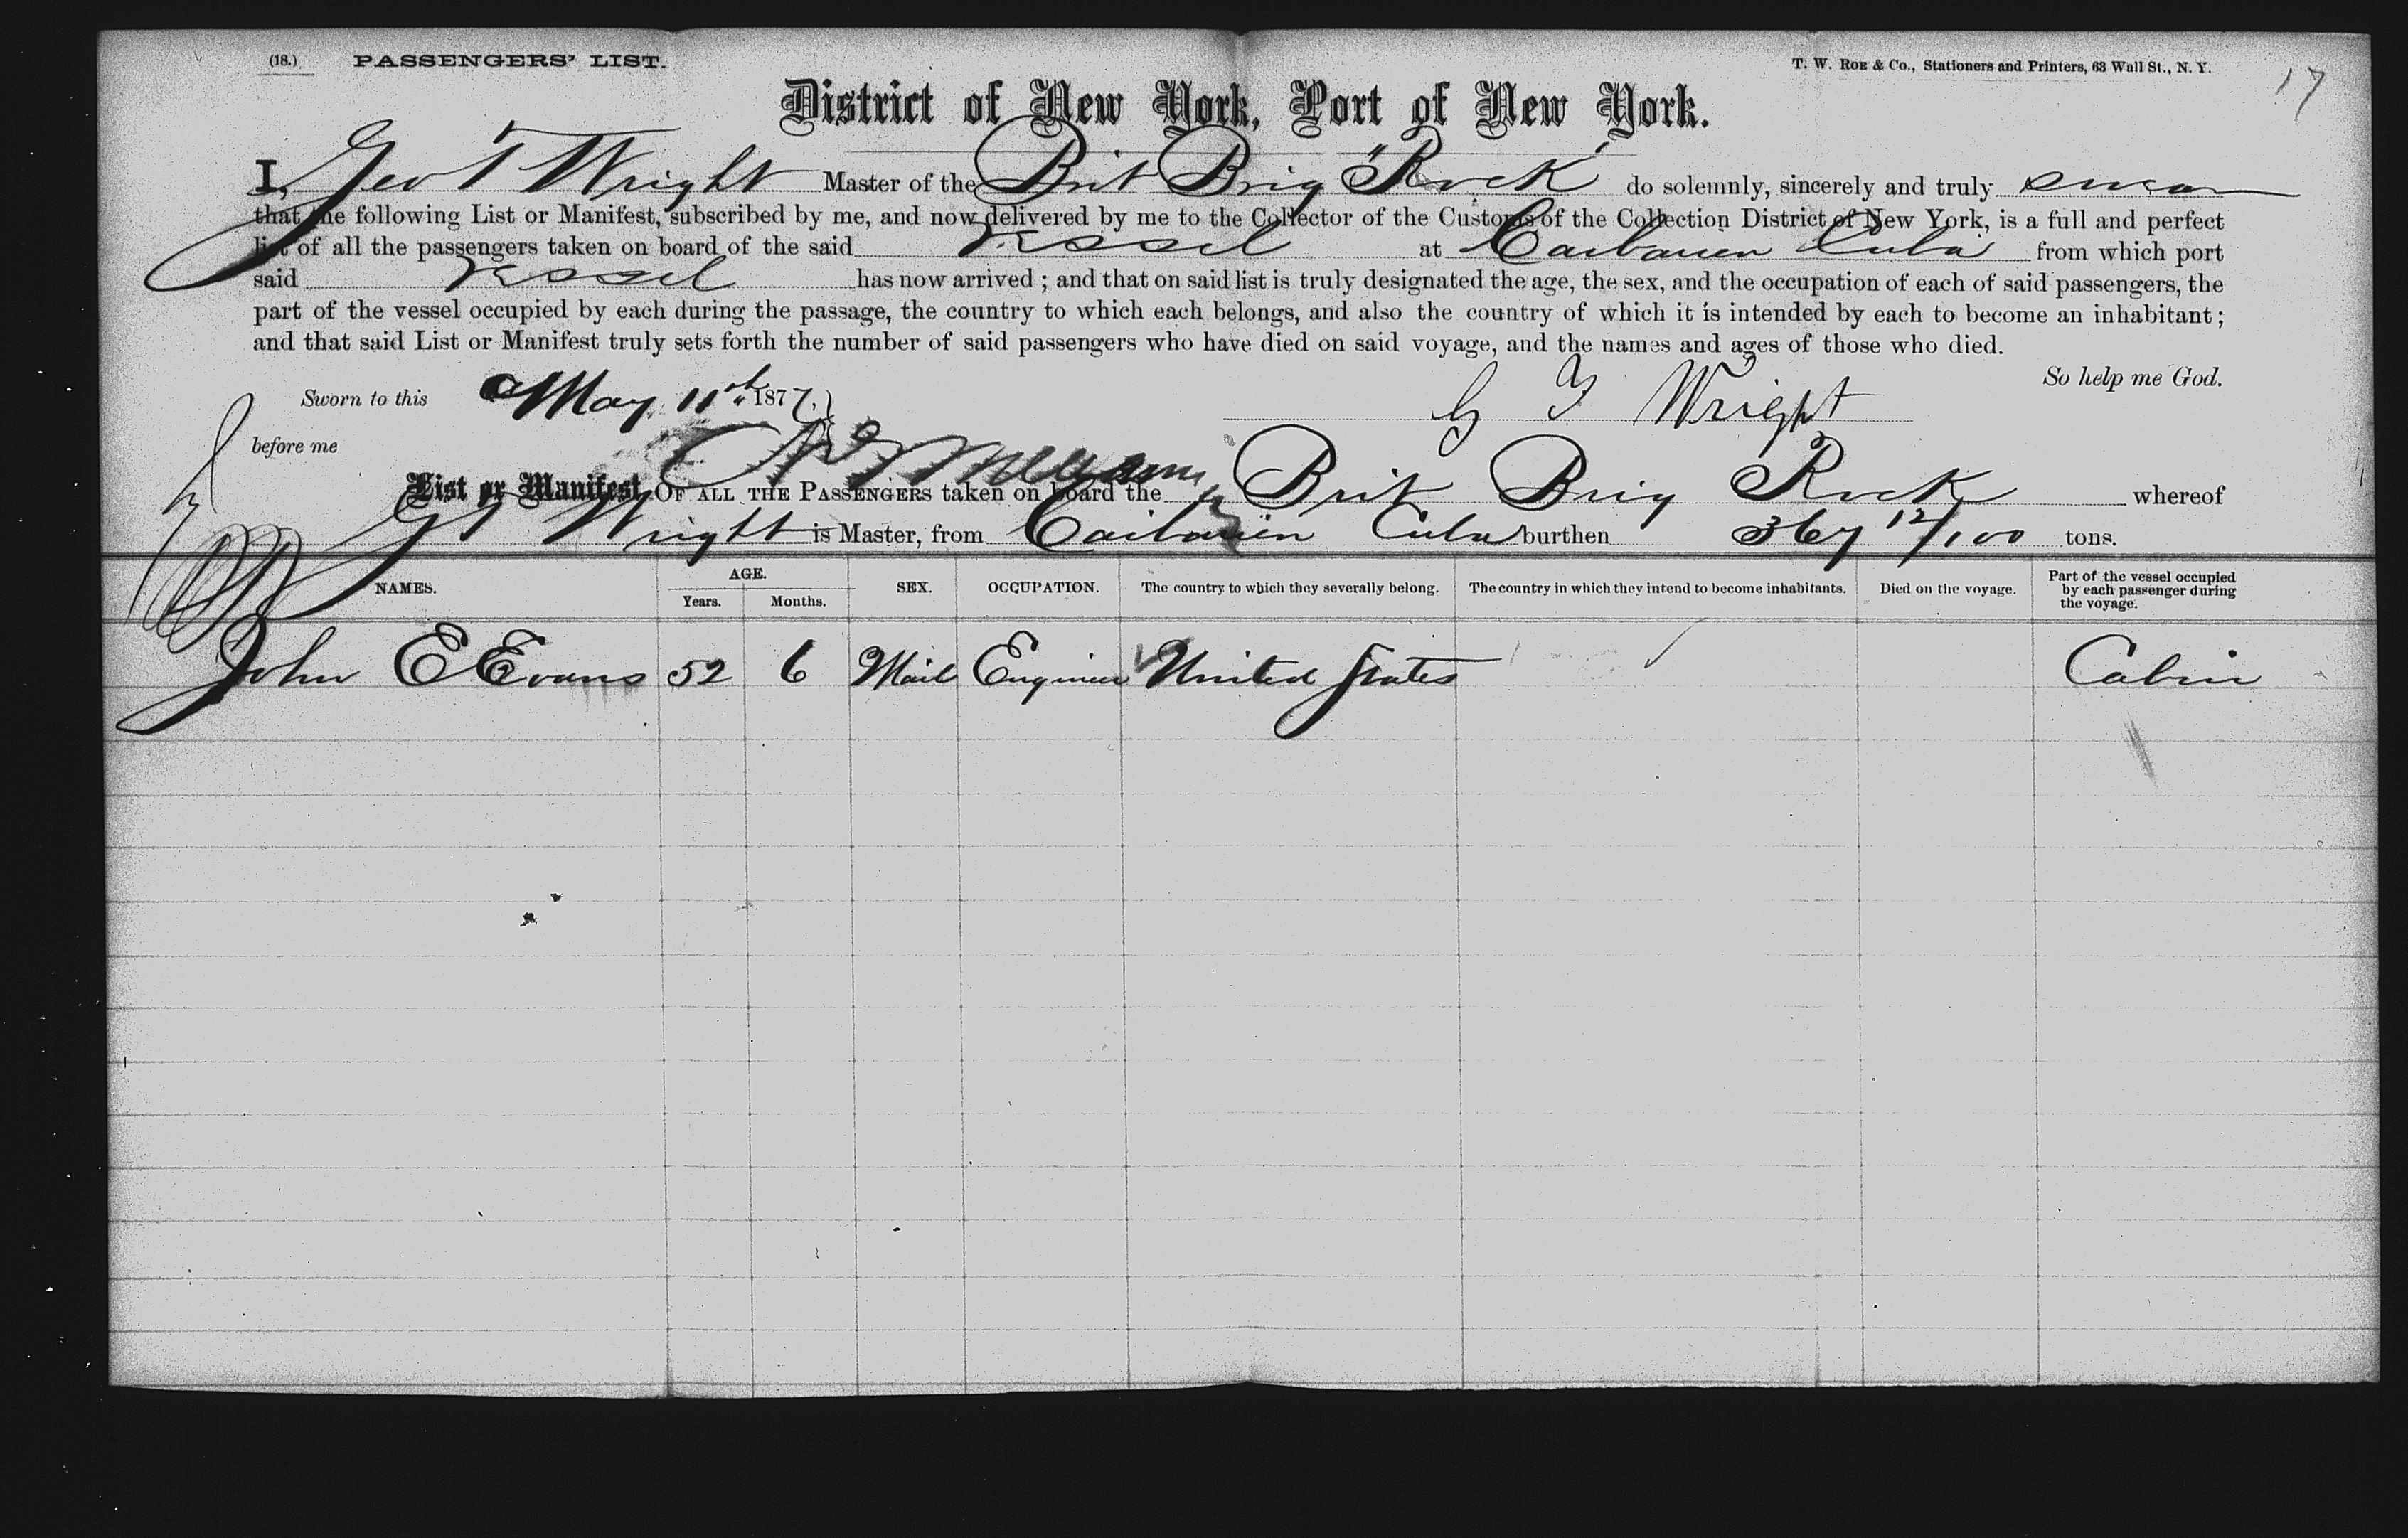 (18.) PASSENGERS' LIST. T. W. Roe & Co., Stationers and Printers, 63 Wall St., N. Y. 17
District of New York, Port of New York.
I, Geo T Wright Master of the Brit Brig "Rock" do solemnly, sincerely and truly swear
that the following List or Manifest, subscribed by me, and now delivered by me to the Collector of the Customs of the Collection District of New York, is a full and perfect
list of all the passengers taken on board of the said vessel at Caibarien Cuba from which port
said vessel has now arrived; and that on said list is truly designated the age, the sex, and the occupation of each of said passengers, the
part of the vessel occupied by each during the passage, the country to which each belongs, and also the country of which it is intended by each to become an inhabitant;
and that said List or Manifest truly sets forth the number of said passengers who have died on said voyage, and the names and ages of those who died.
So help me God.
Sworn to this May 11th 1877, G T Wright
before me
List or Manifest OF ALL THE PASSENGERS taken on board the Brit Brig Rock whereof
G T Wright is Master, from Caibarien Cuba burthen 367 12/100 tons.
NAMES. AGE. SEX. OCCUPATION. The country to which they severally belong. The country in which they intend to become inhabitants. Died on the voyage. Part of the vessel occupied by each passenger during the voyage.
Years. Months.
John E Evans 52 6 Mail Enginier United States Cabin